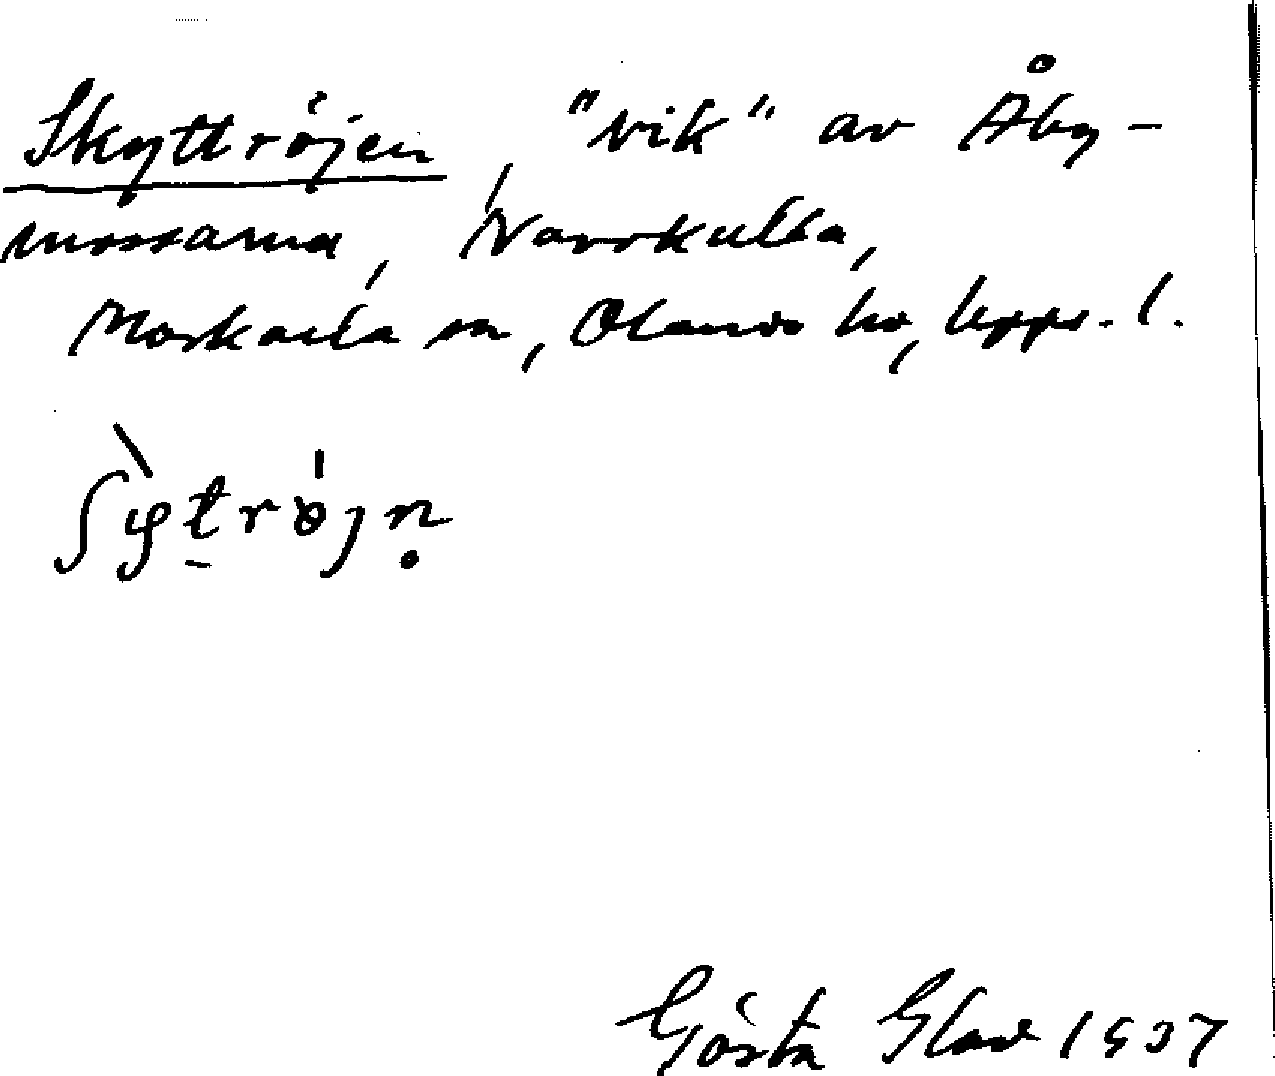 Skyttröjen, "vik" av Åby-
mossarna, Norrkulla,
Morkarla sn, Olands hd, Upps. l.
ʃỳt̠røjn̥
Gösta 1937